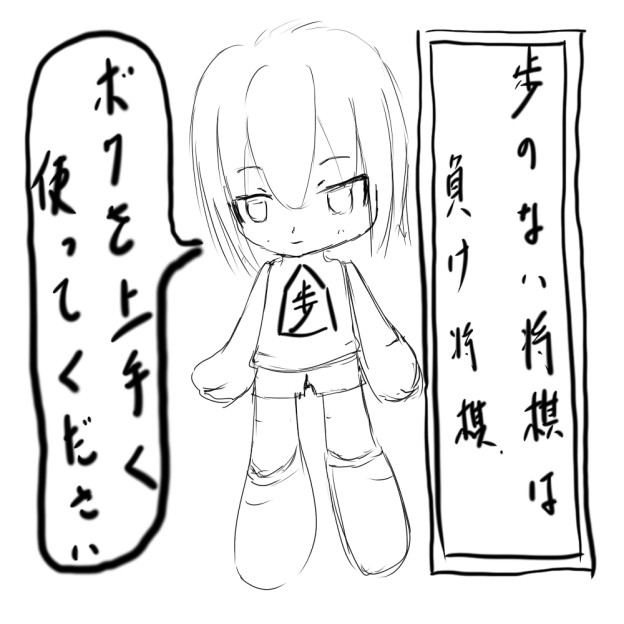 歩のない将棋は
負け将棋.
歩
ボクを上手く
使ってください